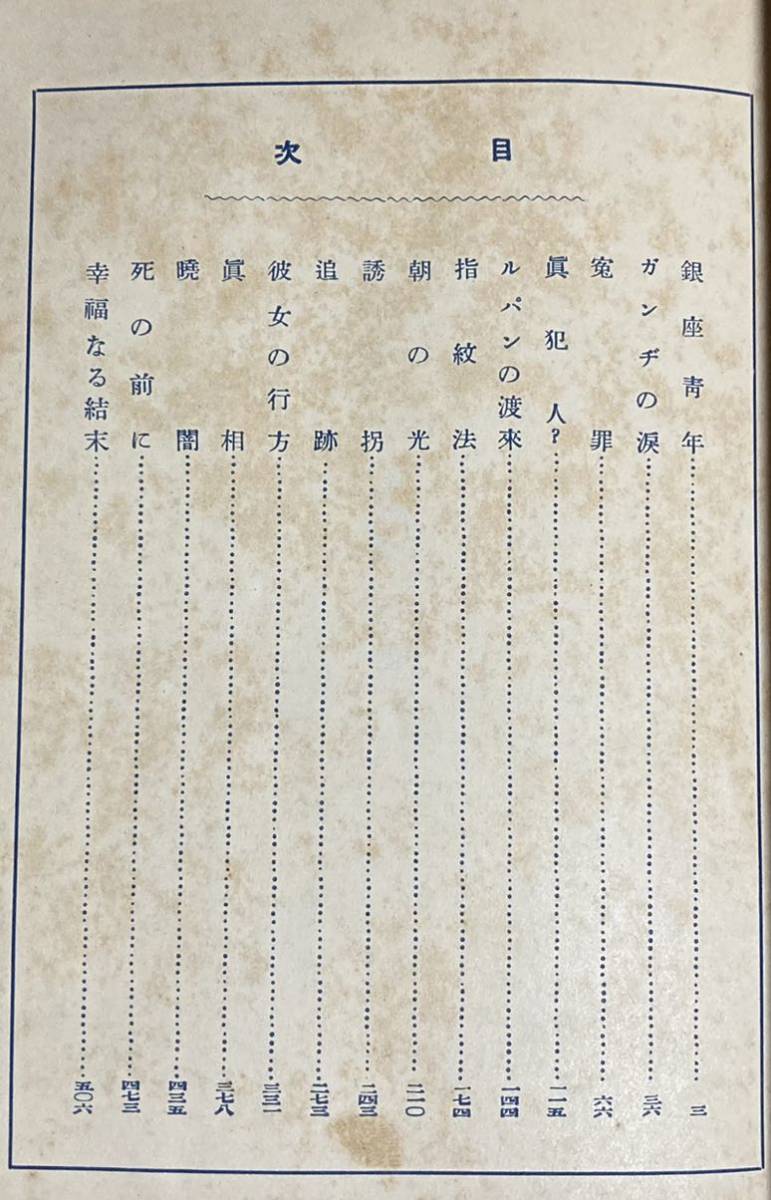 目次
銀座靑年……三
ガンヂの淚……三六
冤罪……六六
眞犯人?……一一五
ルパンの渡來……一四四
指紋法……一七四
朝の光……二一〇
誘拐……二四三
追跡……二七三
彼女の行方……三三一
眞相……三七八
曉闇……四三五
死の前に……四七三
幸福なる結末……五〇六